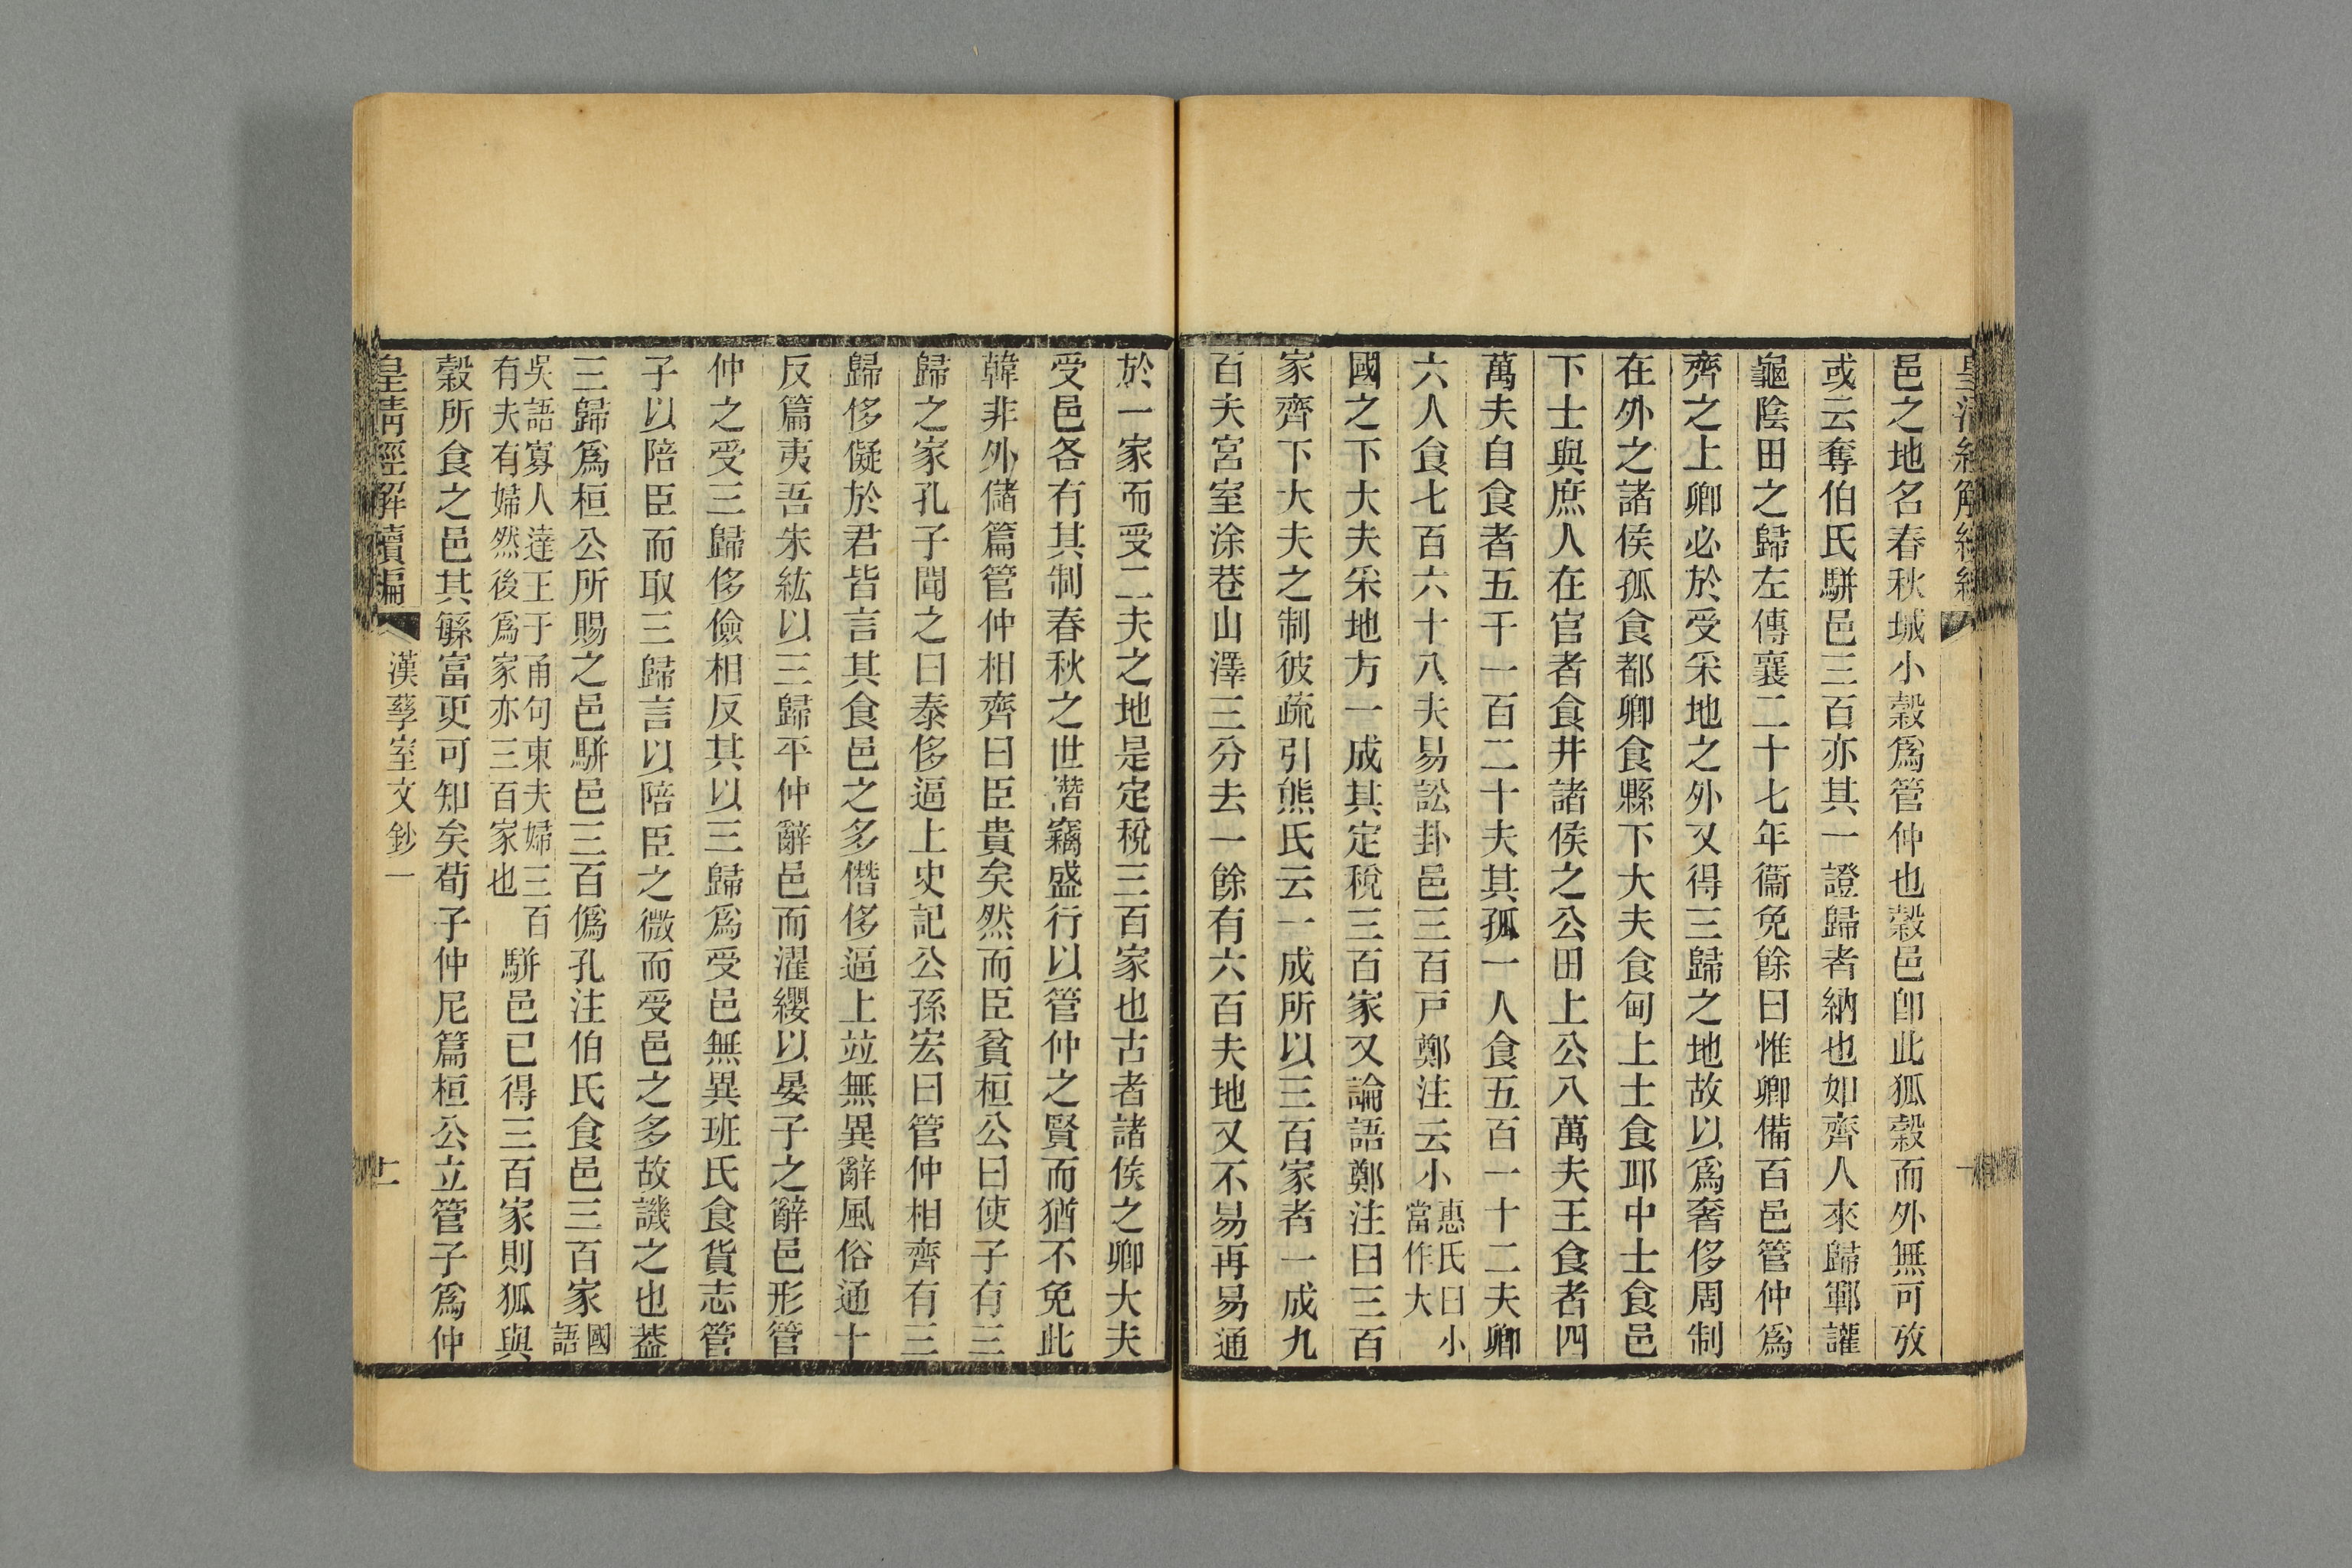 邑之地名春秋城小穀爲管仲也穀邑卽此狐穀而外無可攷
或云奪伯氏駢邑三百亦其一證歸者納也如齊人來歸鄆讙
龜陰田之歸左傳襄二十七年衞免餘曰惟卿備百邑管仲爲
齊之上卿必於受采地之外又得三歸之地故以爲奢侈周制
在外之諸侯孤食都卿食縣下大夫食甸上士食邱中士食邑
下士與庶人在官者食井諸侯之公田上公八萬夫王食者四
萬夫自食者五千一百二十夫其孤一人食五百一十二夫卿
六人食七百六十八夫易訟卦邑三百戸鄭注云小惠氏曰小當作大
國之下大夫采地方一成其定稅三百家又論語鄭注曰三百
家齊下大夫之制彼疏引熊氏云一成所以三百家者一成九
百夫宮室涂巷山澤三分去一餘有六百夫地又不易再易通
於一家而受二夫之地是定稅三百家也古者諸侯之卿大夫
受邑各有其制春秋之世潛竊盛行以管仲之賢而猶不免此
韓非外儲篇管仲相齊曰臣貴矣然而臣貧桓公曰使子有三
歸之家孔子聞之曰泰侈逼上史記公孫宏曰管仲相齊有三
歸侈儗於君皆言其食邑之多僭侈逼上竝無異辭風俗通十
反篇夷吾朱紘以三歸平仲辭邑而濯纓以晏子之辭邑形管
仲之受三歸侈儉相反其以三歸爲受邑無異班氏食貨志管
子以陪臣而取三歸言以陪臣之微而受邑之多故譏之也葢
三歸爲桓公所賜之邑駢邑三百僞孔注伯氏食邑三百家國語
吳語寡人達王于甬句東夫婦三百有夫有婦然後爲家亦三百家也駢邑已得三百家則狐與
穀所食之邑其緐富更可知矣荀子仲尼篇桓公立管子爲仲
皇淸經解續編 漢孳室文鈔一 二